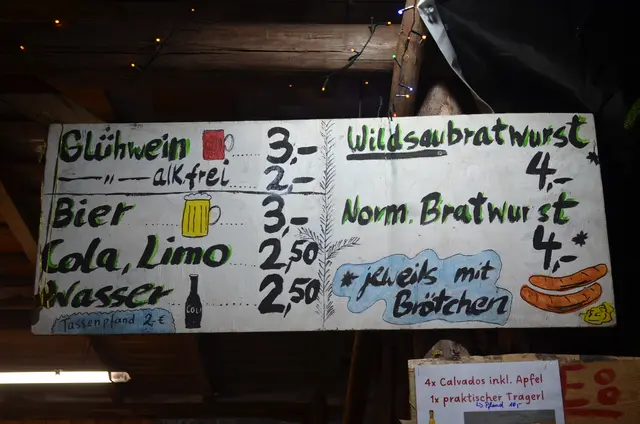 Glühwein 3,-
—〃— alk.frei 2,-
Bier 3,-
Cola, Limo 2,50
Wasser 2,50
Tassenpfand 2,-€
COLA
Wildsaubratwurst
4,-*
Norm. Bratwurst
4,-*
* jeweils mit
Brötchen
4x Calvados inkl. Apfel
1x praktischer Tragerl
Pfand 10,-